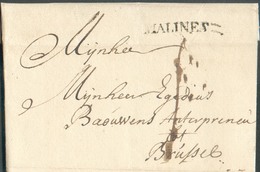 MALINES
Mijnheer
Mijnheer Egidius
Baouwens Anterpreneur
tot
Brussel